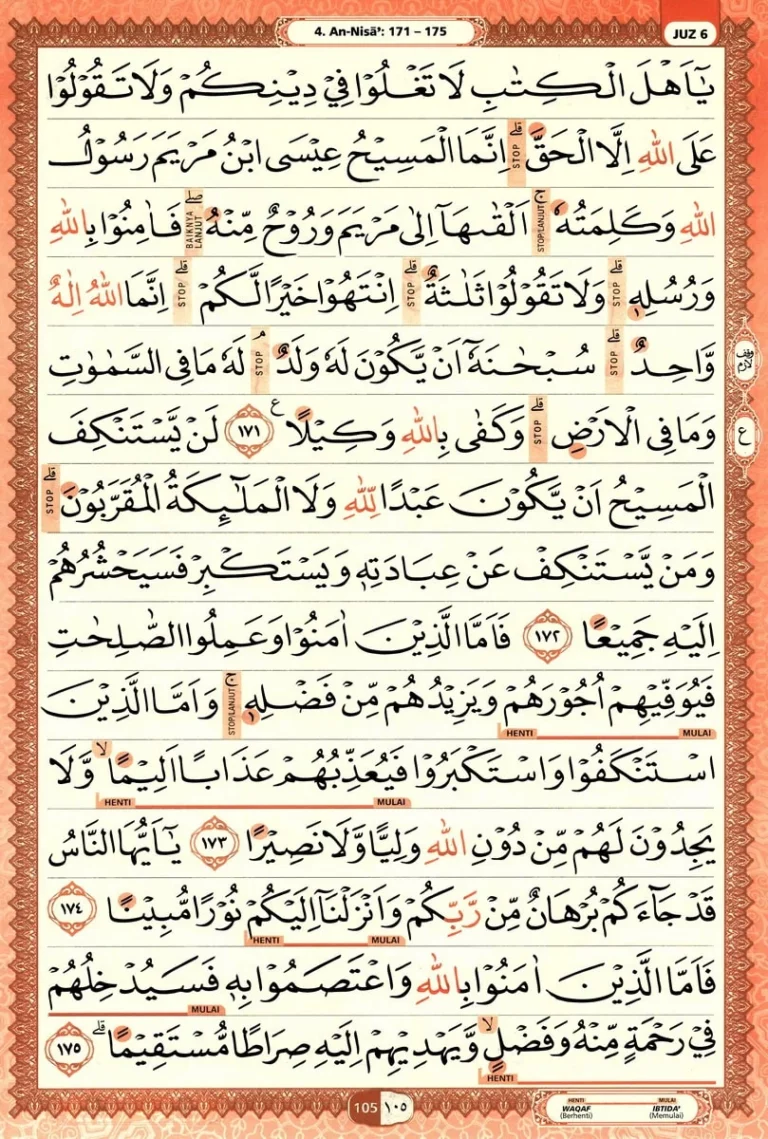 4. An-Nisā': 171 – 175
JUZ 6
يٰٓاَهْلَ الْكِتٰبِ لَا تَغْلُوْا فِيْ دِيْنِكُمْ وَلَا تَقُوْلُوْا
عَلَى اللّٰهِ اِلَّا الْحَقَّۗ STOP اِنَّمَا الْمَسِيْحُ عِيْسَى ابْنُ مَرْيَمَ رَسُوْلُ
اللّٰهِ وَكَلِمَتُهٗۚ STOP/LANJUT اَلْقٰىهَآ اِلٰى مَرْيَمَ وَرُوْحٌ مِّنْهُۖ BAIKNYA LANJUT فَاٰمِنُوْا بِاللّٰهِ
وَرُسُلِهٖۗ STOP وَلَا تَقُوْلُوْا ثَلٰثَةٌۗ STOP اِنْتَهُوْا خَيْرًا لَّكُمْۗ STOP اِنَّمَا اللّٰهُ اِلٰهٌ
وَّاحِدٌۗ STOP سُبْحٰنَهٗٓ اَنْ يَّكُوْنَ لَهٗ وَلَدٌۘ STOP لَهٗ مَا فِى السَّمٰوٰتِ
وقف لازم
وَمَا فِى الْاَرْضِۗ STOP وَكَفٰى بِاللّٰهِ وَكِيْلًا ࣖ ١٧١ لَنْ يَّسْتَنْكِفَ
ع
الْمَسِيْحُ اَنْ يَّكُوْنَ عَبْدًا لِّلّٰهِ وَلَا الْمَلٰۤىِٕكَةُ الْمُقَرَّبُوْنَۗ STOP
وَمَنْ يَّسْتَنْكِفْ عَنْ عِبَادَتِهٖ وَيَسْتَكْبِرْ فَسَيَحْشُرُهُمْ
اِلَيْهِ جَمِيْعًا ١٧٢ فَاَمَّا الَّذِيْنَ اٰمَنُوْا وَعَمِلُوا الصّٰلِحٰتِ
فَيُوَفِّيْهِمْ اُجُوْرَهُمْ وَيَزِيْدُهُمْ مِّنْ فَضْلِهٖۚ STOP/LANJUT وَاَمَّا الَّذِيْنَ
MULAI HENTI
اسْتَنْكَفُوْا وَاسْتَكْبَرُوْا فَيُعَذِّبُهُمْ عَذَابًا اَلِيْمًاۙ وَّلَا
MULAI HENTI
يَجِدُوْنَ لَهُمْ مِّنْ دُوْنِ اللّٰهِ وَلِيًّا وَّلَا نَصِيْرًا ١٧٣ يٰٓاَيُّهَا النَّاسُ
قَدْ جَاۤءَكُمْ بُرْهَانٌ مِّنْ رَّبِّكُمْ وَاَنْزَلْنَآ اِلَيْكُمْ نُوْرًا مُّبِيْنًا ١٧٤
MULAI HENTI
فَاَمَّا الَّذِيْنَ اٰمَنُوْا بِاللّٰهِ وَاعْتَصَمُوْا بِهٖ فَسَيُدْخِلُهُمْ
MULAI
فِيْ رَحْمَةٍ مِّنْهُ وَفَضْلٍۙ وَّيَهْدِيْهِمْ اِلَيْهِ صِرَاطًا مُّسْتَقِيْمًاۗ ١٧٥
HENTI
105 ١٠٥
HENTI MULAI
WAQAF IBTIDA'
(Berhenti) (Memulai)